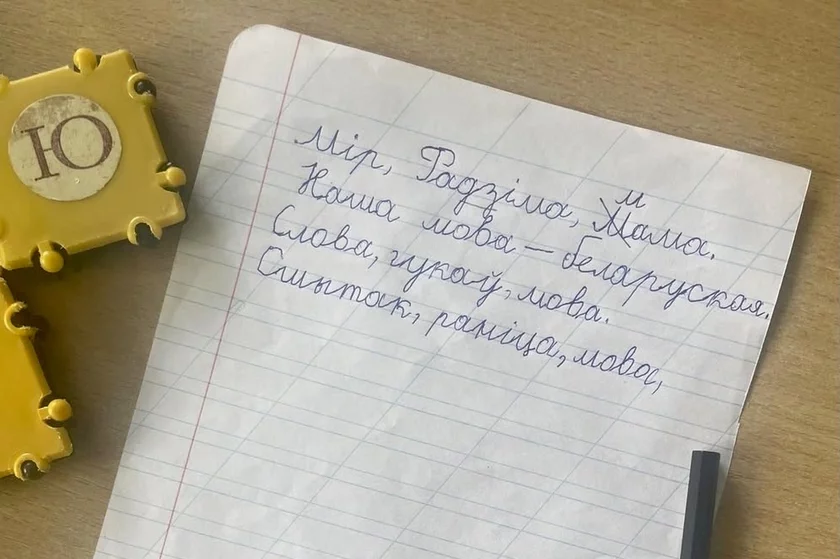 Ю
Мір, Радзіма, мама.
Наша мова – беларуская.
Слова, гукаў, мова.
Сшытак, раніца, мова,